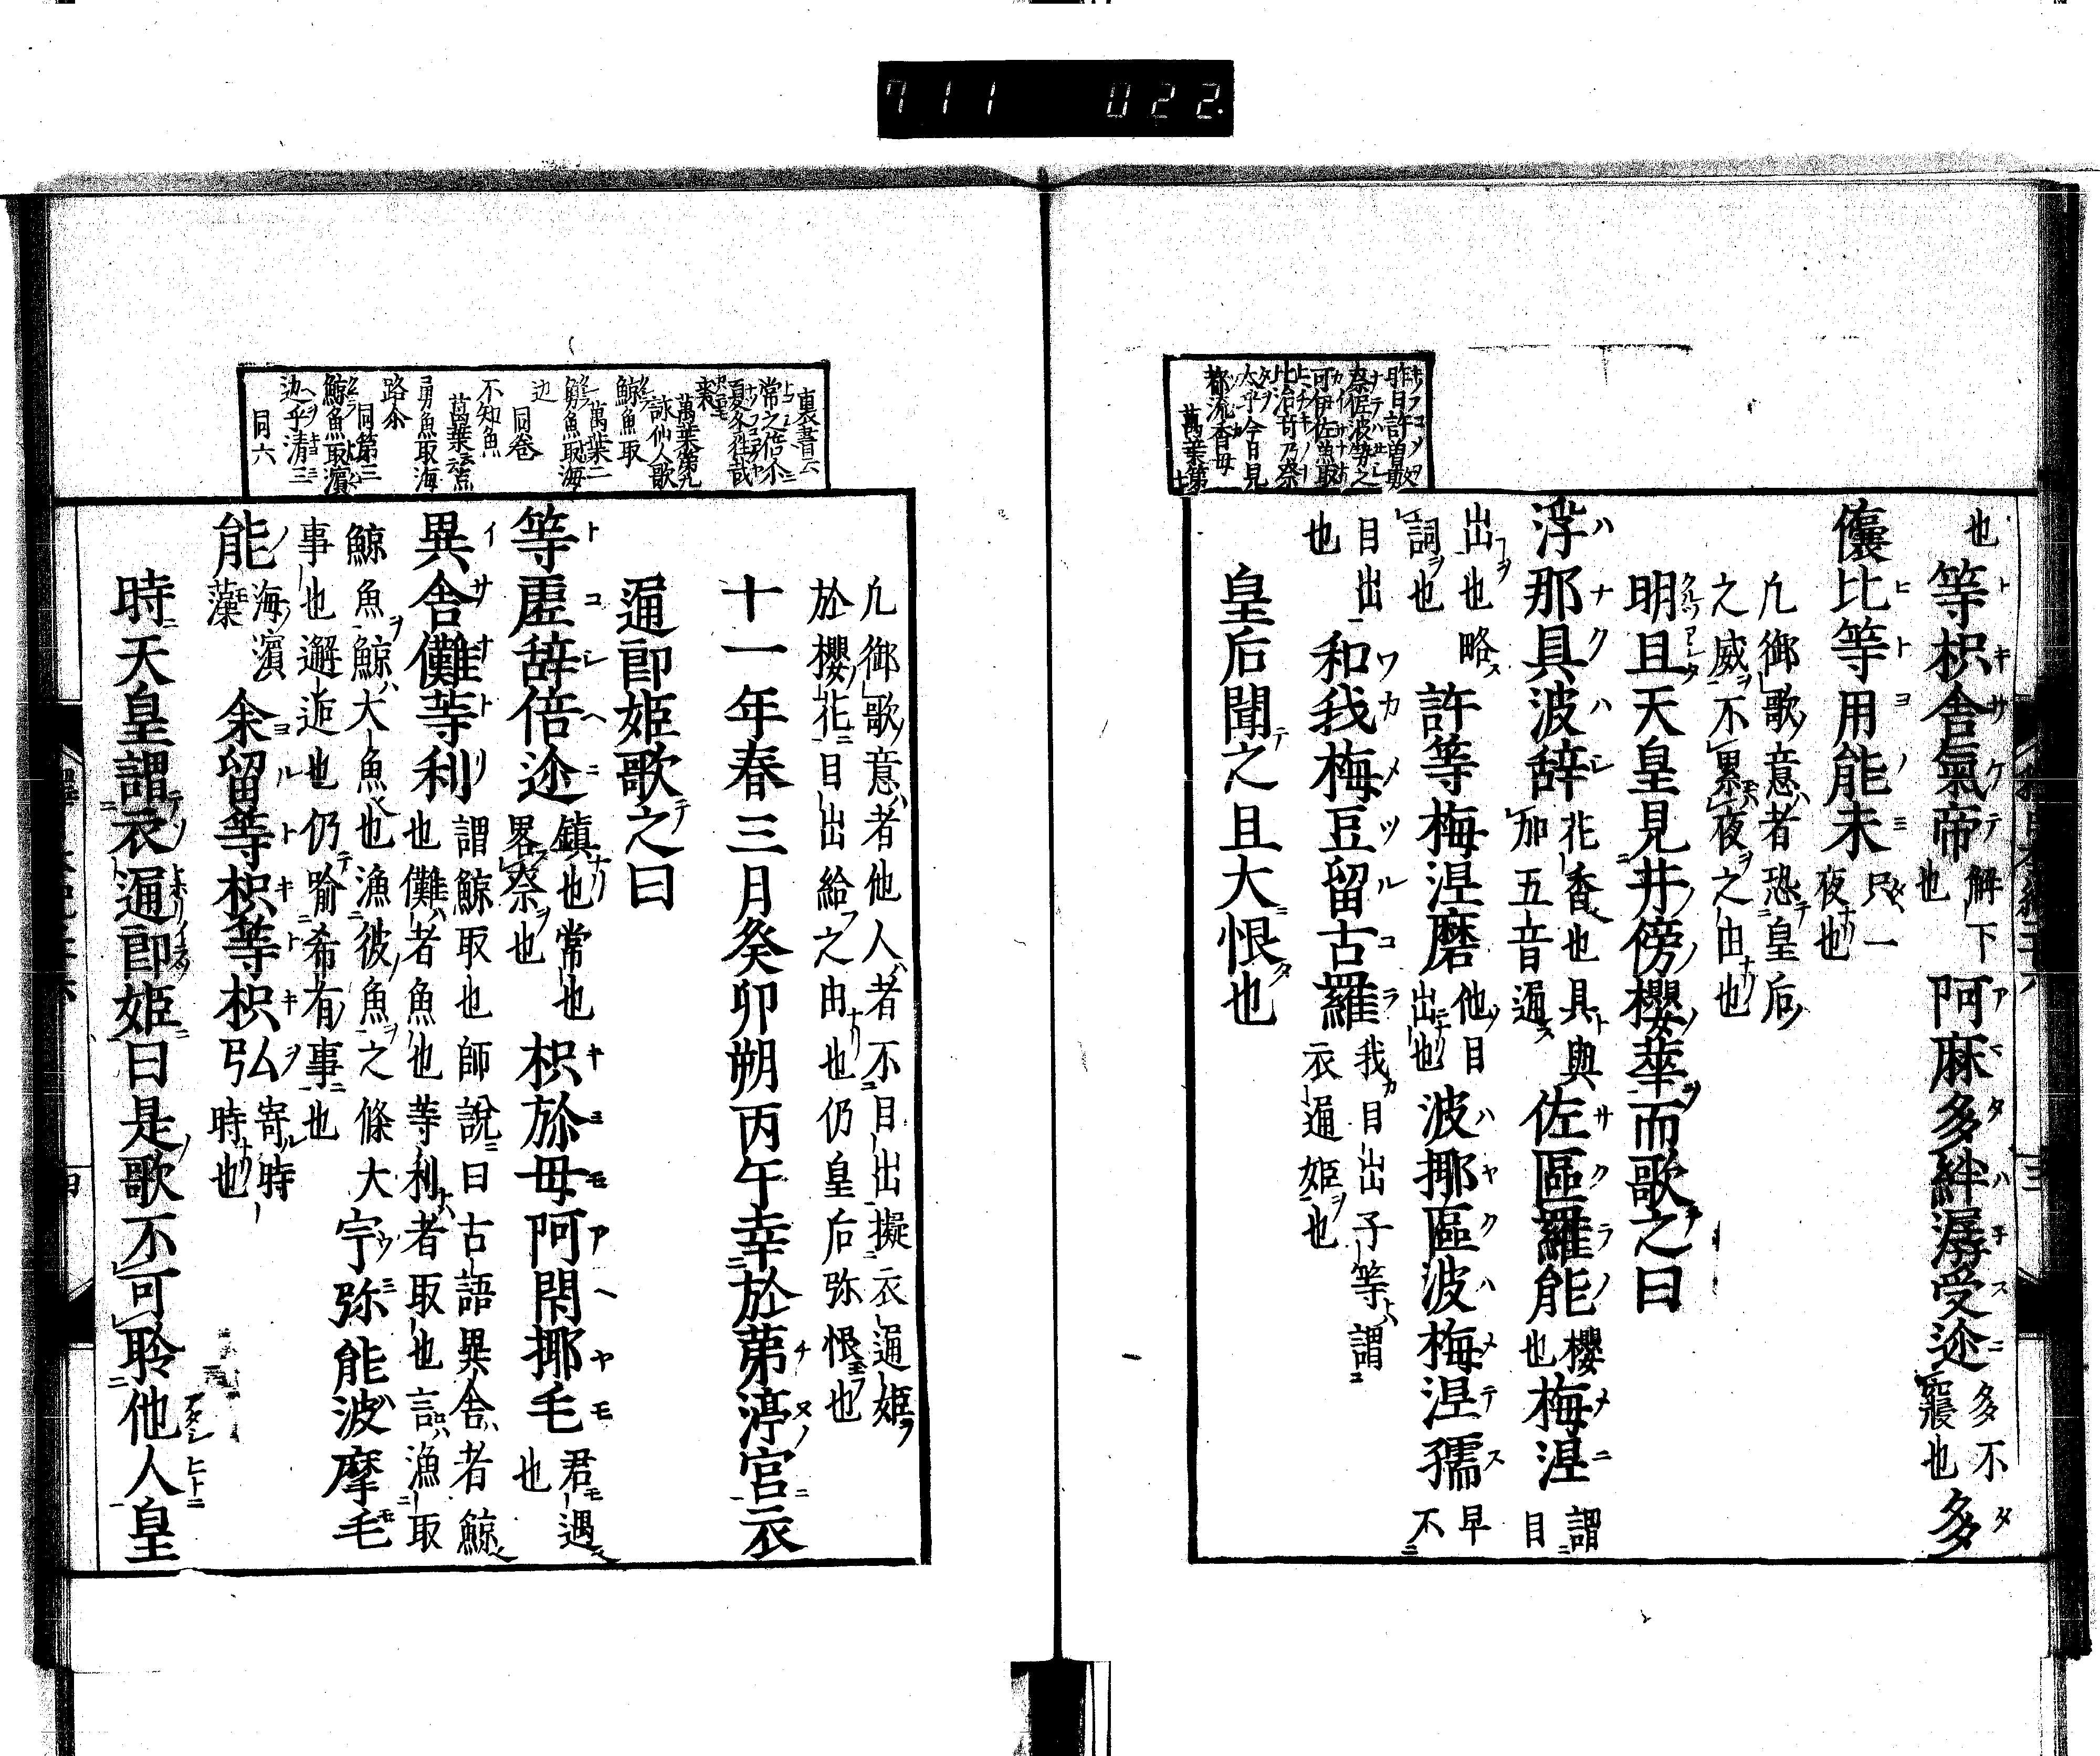 也等枳舎氣帝解下也阿麻多絆潺受迩多不寝也多
儾比等用能未只一夜也
凡御歌意者恐皇后
之威不累夜之由也
明旦天皇見井傍櫻華而歌之曰
浮那具波辞花香也具與加五音通佐區羅能櫻也梅涅謂目
出也略詞也許等梅涅磨他目出也波挪區波梅涅孺早不
目出也和我梅豆留古羅我目出子等謂衣通姫也
皇后聞之且大恨也
昨日許曽
奈佐波勢之
可伊佐魚取
比治奇乃奈
太乎今日見
都流香母
萬葉第
十七
凡御歌意者他人者不目出擬衣通姫
於櫻花目出給之由也仍皇后弥恨也
十一年春三月癸卯朔丙午幸於茅渟宮衣
通郎姫歌之曰
等虚辞倍迩鎮也常也畧奈也枳弥母阿閇挪毛君遇也
異舎儺等利謂鯨取也師説曰古語異舎者鯨也儺者魚也等利者取也言漁取
鯨魚鯨大魚也漁彼魚之條大事也邂逅也仍喩希有事也宇弥能波摩毛
能海濱藻余留等枳等枳弘寄時時也
時天皇謂衣通郎姫曰是歌不可聆他人皇
裏書云
常之倍尓
夏冬往哉
裘
萬葉第九
詠仙人歌
鯨魚取
萬葉二
勇魚取海
辺
同巻
不知魚
萬葉云
勇魚取海
路尓
同第三
鯨魚取濱
辺乎清三
同六
711 022